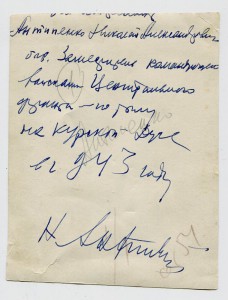 Антипенко Николай Александрович
Заместитель командующего
войсками Центрального
фронта — по тылу
на курской дуге
в 1943 году
Н Антипенко